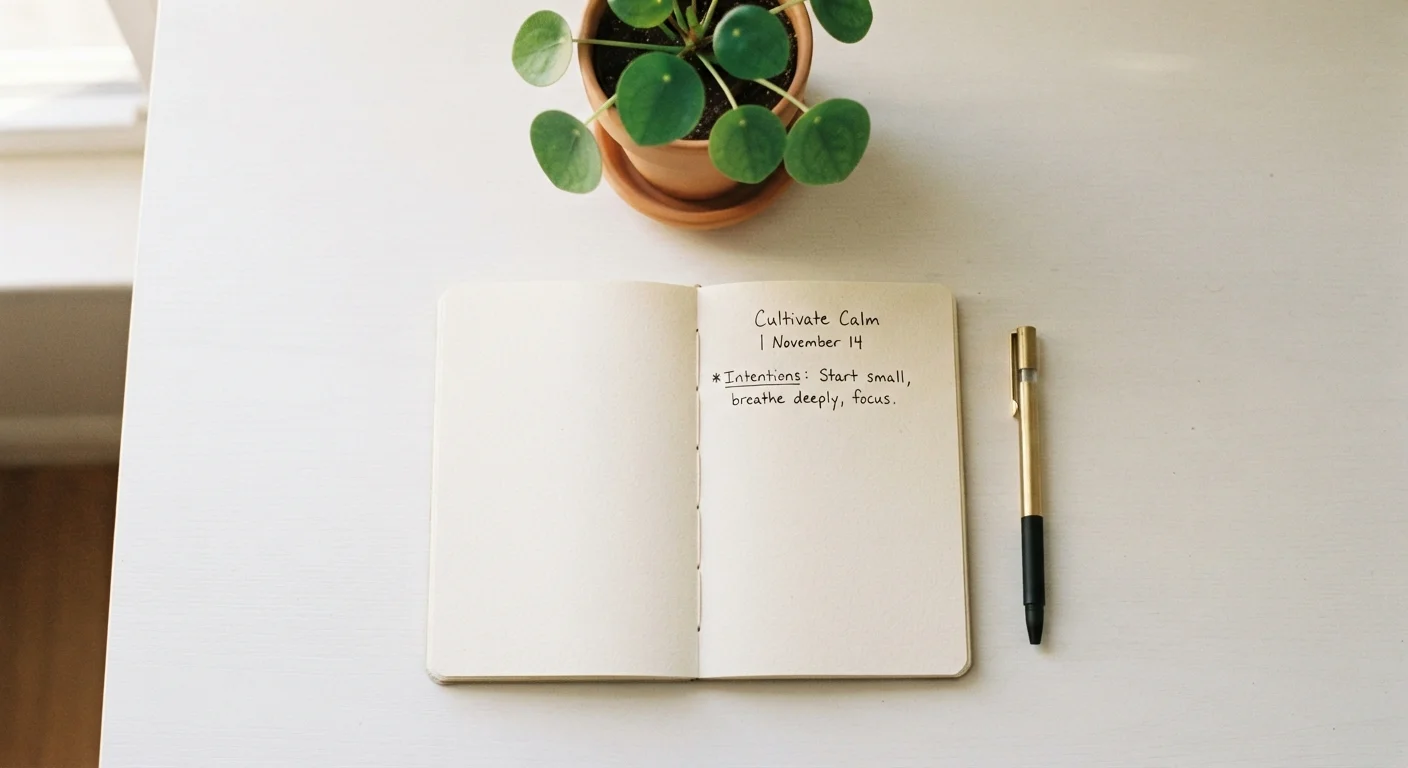 Cultivate Calm
| November 14
*Intentions: Start small,
breathe deeply, focus.